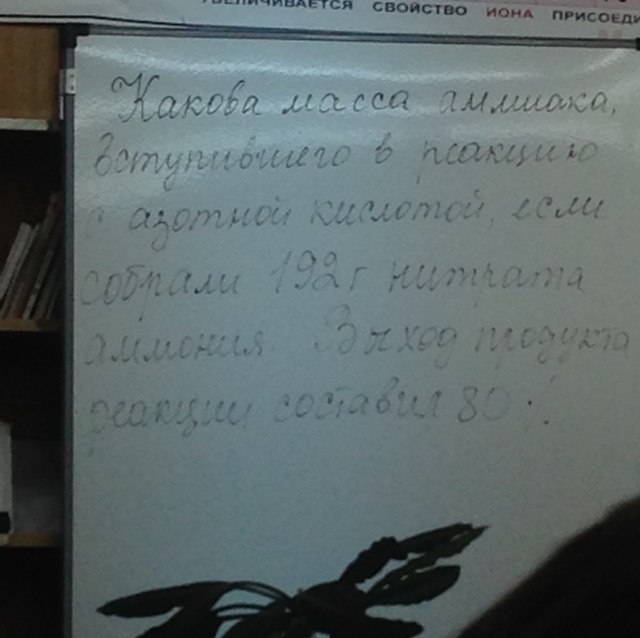 УВЕЛИЧИВАЕТСЯ СВОЙСТВО ИОНА ПРИСОЕДИ
Какова масса аммиака,
вступившего в реакцию
с азотной кислотой, если
собрали 192 г нитрата
аммония. Выход продукта
реакции составил 80 %.